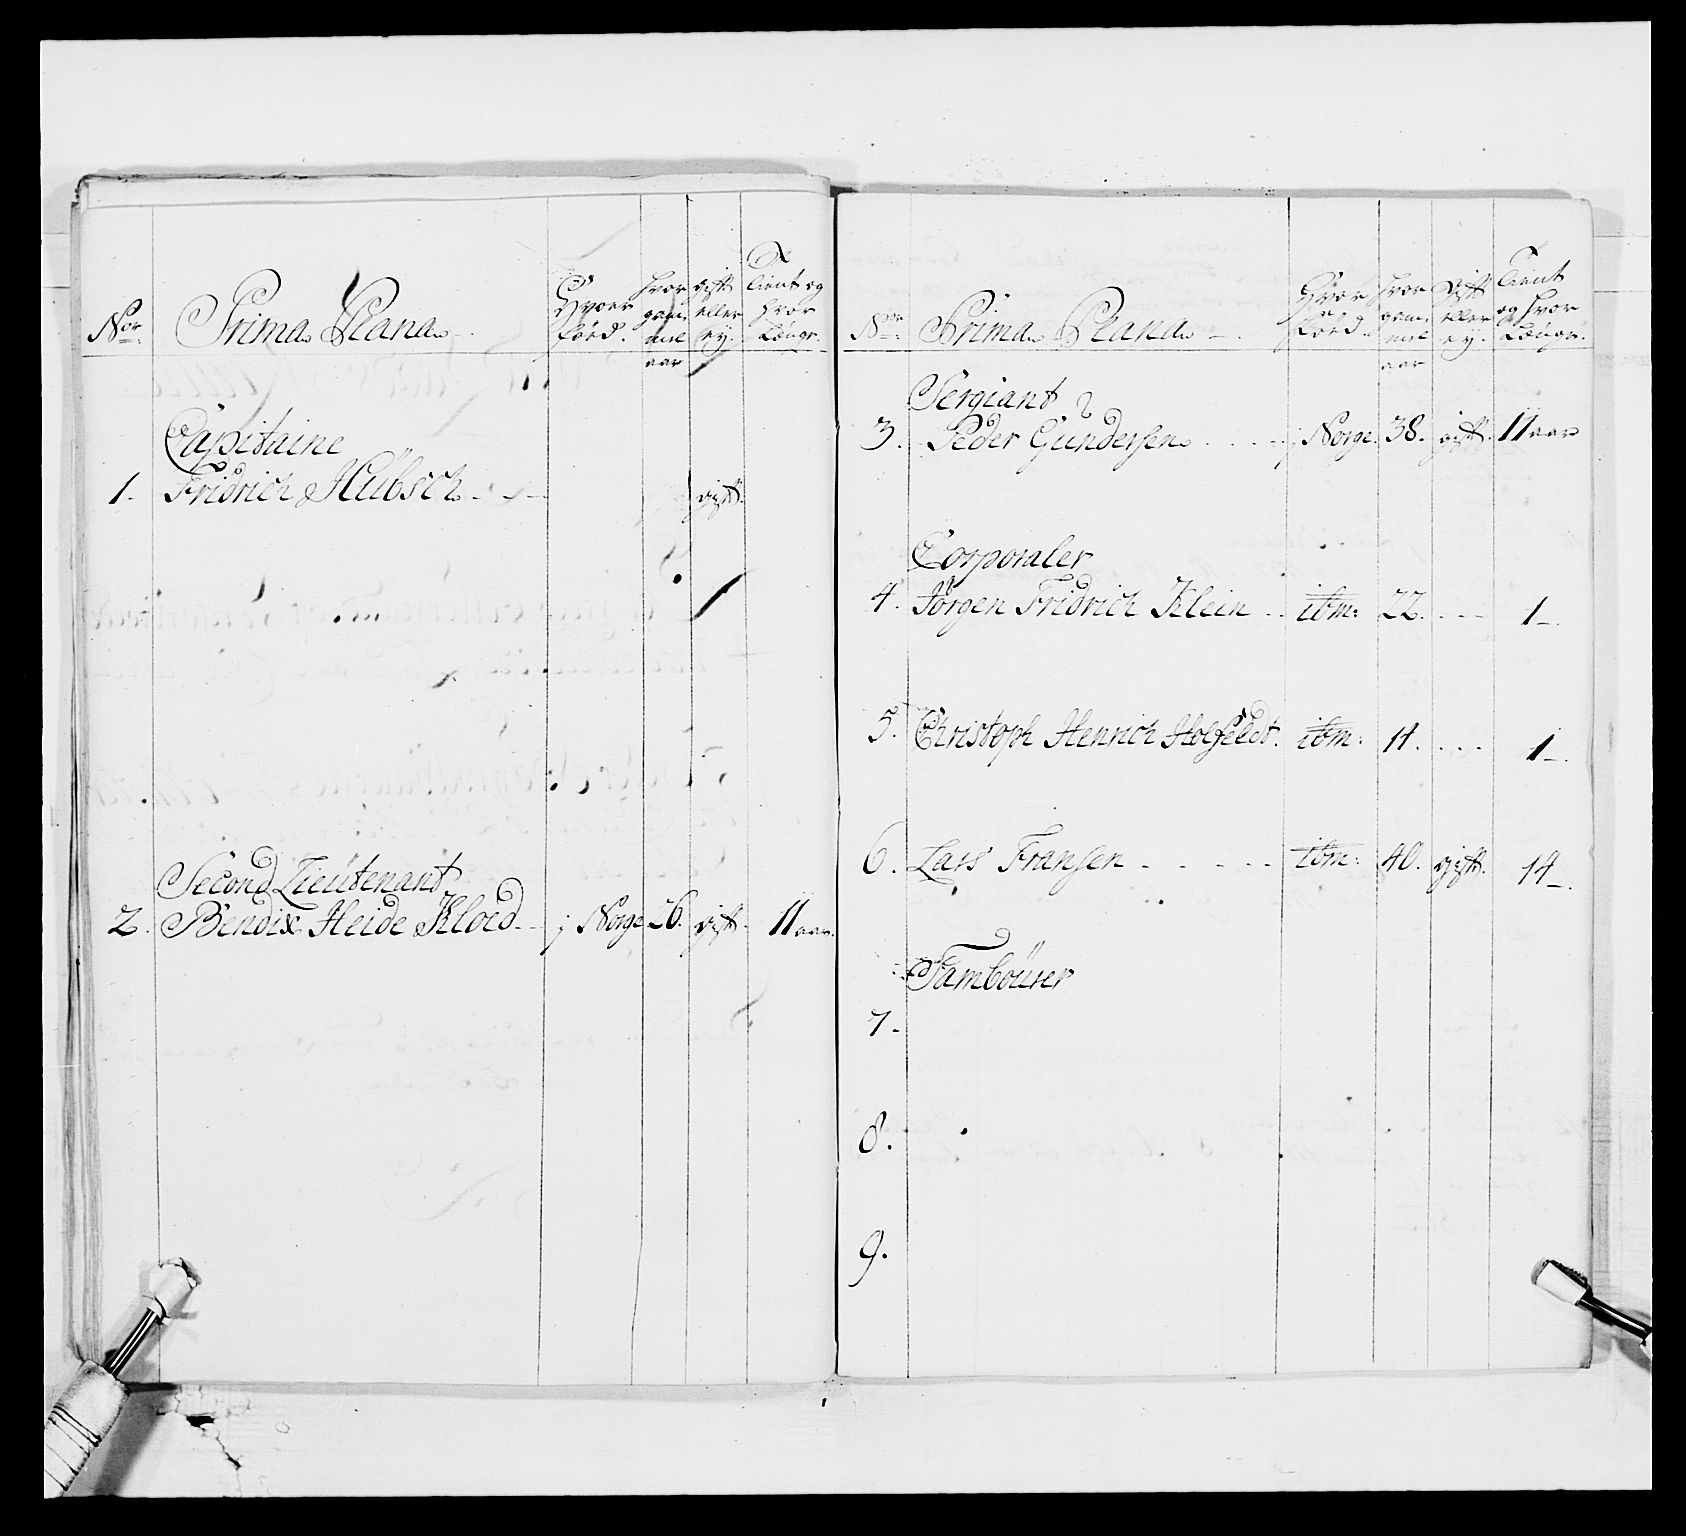 Nor: Prima Plana Hvor fød. hvor gam- mel aar gift eller ey. Tient og hvor Længe.
Capitaine
1. Fridrich Hübsch gift.
Second Lieütenant
2. Bendix Heide Kloed i Norge 26. gift. 11 aar.
Nor: Prima Plana Hvor fød. hvor gam- mel aar Gift eller ey. Tient og hvor Længe.
Sergiant
3. Peder Gundersen i Norge. 38. gift. 11 aar
Corporaler
4. Jørgen Fridrich Klein ibm: 22. 1.
5. Christoph Henrich Holfeldt. ibm: 14. 1.
6. Lars Fransen ibm: 40. gift. 14.
Tamboürer
7.
8.
9.